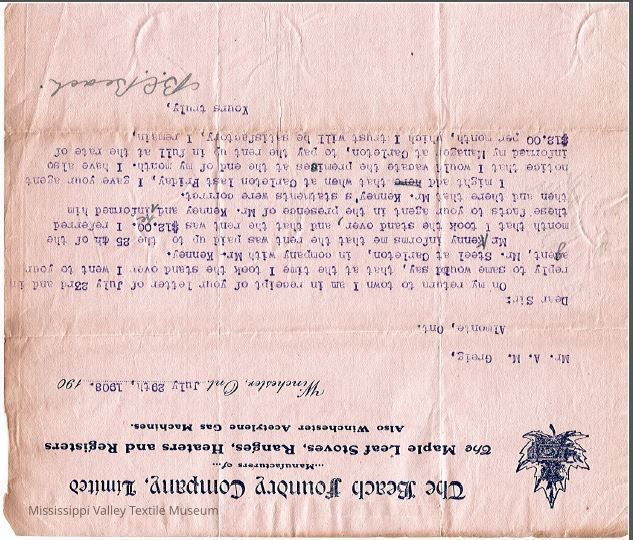 The Beach Foundry Company, Limited
...Manufacturers of...
The Maple Leaf Stoves, Ranges, Heaters and Registers
Also Winchester Acetylene Gas Machines.
Winchester, Ont. July 29th, 1908. 190
Mr. A. M. Greig,
Almonte, Ont.
Dear Sir:
On my return to town I am in receipt of your letter of July 23rd and in
reply to same would say, that at the time I took the stand over I went to your
agent, Mr. Steel at Carleton, in company with Mr. Kenney.
Mr Kenny informs me that the rent was paid up to the 25 th of the
month that I took the stand over, and that the rent was $12.00. I referred
these facts to your agent in the presence of Mr. Kenney and informed him
then and there that Mr. Kenney's statements were correct.
I might add here that when at Carleton last Friday, I gave your agent
notice that I would vacate the premises at the end of my month. I have also
informed my Manager at Carleton, to pay the rent my in full at the rate of
$12.00 per month, which I trust will be satisfactory, I remain,
Yours truly,
B.C. Beach.
Mississippi Valley Textile Museum